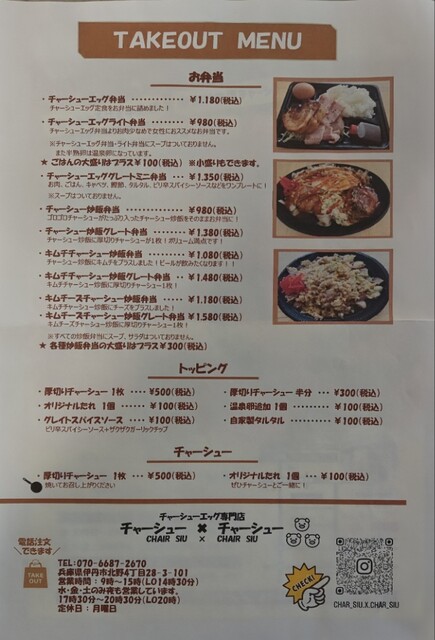 TAKEOUT MENU
お弁当
・チャーシューエッグ弁当 ・・・・・・・・・・・・ ¥1.180(税込)
チャーシューエッグ定食をお弁当に詰めました！
・チャーシューエッグライト弁当 ・・・・・ ¥980(税込)
チャーシューエッグ弁当よりお肉少なめで女性におススメなお弁当です。
※チャーシューエッグ弁当・ライト弁当にスープはついておりません。
また半熟卵は温泉卵になっています。
★ ごはんの大盛りはプラス¥100(税込) ※小盛りもできます。
・チャーシューエッググレートミニ弁当 ・・・ ¥1.350(税込)
お肉、ごはん、キャベツ、鰹節、タルタル、ピリ辛スパイシーソースなどをワンプレートに！
※スープはついておりません。
・チャーシュー炒飯弁当 ・・・・・・・・・・・・ ¥980(税込)
ゴロゴロチャーシューがたっぷり入ったチャーシュー炒飯をそのままお弁当に！
・チャーシュー炒飯グレート弁当 ・・・・・ ¥1.380(税込)
チャーシュー炒飯に厚切りチャーシューが1枚！ボリューム満点です！
・キムチチャーシュー炒飯弁当 ・・・・・・ ¥1.080(税込)
チャーシュー炒飯にキムチをプラスしました！ビールが飲みたくなります！！
・キムチチャーシュー炒飯グレート弁当 ・・ ¥1.480(税込)
キムチチャーシュー炒飯に厚切りチャーシュー1枚！
・キムチーズチャーシュー炒飯弁当 ・・・・ ¥1.180(税込)
キムチチャーシュー炒飯にチーズをプラスしました！
・キムチーズチャーシュー炒飯グレート弁当 ¥1.580(税込)
キムチーズチャーシュー炒飯に厚切りチャーシュー1枚！
※すべての炒飯弁当にスープ、サラダはついておりません。
★各種炒飯弁当の大盛りはプラス¥300(税込)
トッピング
・厚切りチャーシュー 1枚 ・・・・ ¥500(税込)
・厚切りチャーシュー 半分 ・・・ ¥300(税込)
・オリジナルたれ 1個 ・・・・・・ ¥100(税込)
・温泉卵追加 1個 ・・・・・・・ ¥100(税込)
・グレイトスパイスソース ・・・・・ ¥100(税込)
ピリ辛スパイシーソース+ザクザクガーリックチップ
・自家製タルタル ・・・・・・・ ¥100(税込)
チャーシュー
・厚切りチャーシュー 1枚 ・・・・ ¥500(税込)
焼いてお召し上がりください
・オリジナルたれ 1個 ・・・・・ ¥100(税込)
ぜひチャーシューとご一緒に！
チャーシューエッグ専門店
チャーシュー × チャーシュー
CHAIR SIU × CHAIR SIU
電話注文
できます
TAKE OUT
TEL:070-6687-2670
兵庫県伊丹市北野4丁目28-3-101
営業時間：9時～15時(LO14時30分)
水・金・土のみ夜も営業しています。
17時30分～20時30分(LO20時)
定休日：月曜日
CHECK!
CHAR_SIU.X.CHAR_SIU